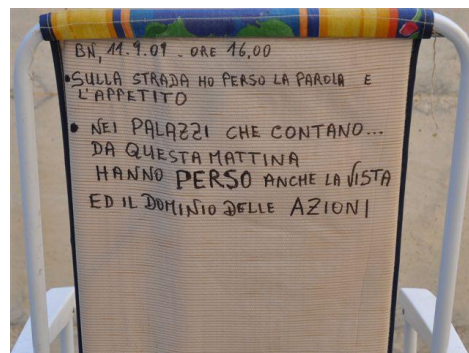 BN, 11.9.09 - ORE 16,00
• SULLA STRADA HO PERSO LA PAROLA E
L'APPETITO
• NEI PALAZZI CHE CONTANO...
DA QUESTA MATTINA
HANNO PERSO ANCHE LA VISTA
ED IL DOMINIO DELLE AZIONI